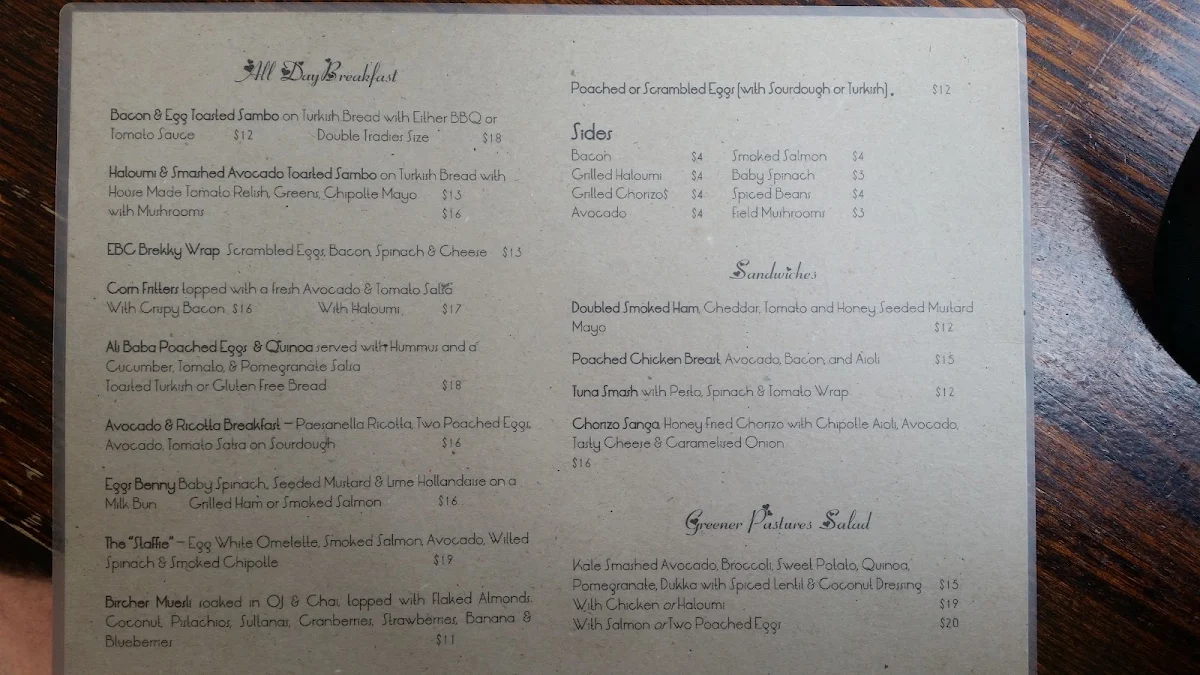 All Day Breakfast
Bacon & Egg Toasted Sambo on Turkish Bread with Either BBQ or
Tomato Sauce $12 Double Tradies Size $18
Haloumi & Smashed Avocado Toasted Sambo on Turkish Bread with
House Made Tomato Relish, Greens, Chipotte Mayo $13
with Mushrooms $16
EBC Brekky Wrap Scrambled Eggs, Bacon, Spinach & Cheese $13
Corn Fritters topped with a fresh Avocado & Tomato Salsa
With Crispy Bacon $16 With Haloumi $17
Ali Baba Poached Eggs & Quinoa served with Hummus and a
Cucumber, Tomato, & Pomegranate Salsa
Toasted Turkish or Gluten Free Bread $18
Avocado & Ricotta Breakfast – Paesanella Ricotta, Two Poached Eggs,
Avocado, Tomato Salsa on Sourdough $16
Eggs Benny Baby Spinach, Seeded Mustard & Lime Hollandaise on a
Milk Bun Grilled Ham or Smoked Salmon $16
The "Staffie" – Egg White Omelette, Smoked Salmon, Avocado, Wilted
Spinach & Smoked Chipotle $19
Bircher Muesli soaked in OJ & Chai, topped with Flaked Almonds,
Coconut, Pistachios, Sultanas, Cranberries, Strawberries, Banana &
Blueberries $11
Poached or Scrambled Eggs (with Sourdough or Turkish). $12
Sides
Bacon $4 Smoked Salmon $4
Grilled Haloumi $4 Baby Spinach $3
Grilled Chorizo$ $4 Spiced Beans $4
Avocado $4 Field Mushrooms $3
Sandwiches
Doubled Smoked Ham, Cheddar, Tomato and Honey Seeded Mustard
Mayo $12
Poached Chicken Breast, Avocado, Bacon, and Aioli $15
Tuna Smash with Pesto, Spinach & Tomato Wrap $12
Chorizo Sanga, Honey Fried Chorizo with Chipotle Aioli, Avocado,
Tasty Cheese & Caramelised Onion
$16
Greener Pastures Salad
Kale Smashed Avocado, Broccoli, Sweet Potato, Quinoa,
Pomegranate, Dukka with Spiced Lentil & Coconut Dressing $15
With Chicken or Haloumi $19
With Salmon or Two Poached Eggs $20